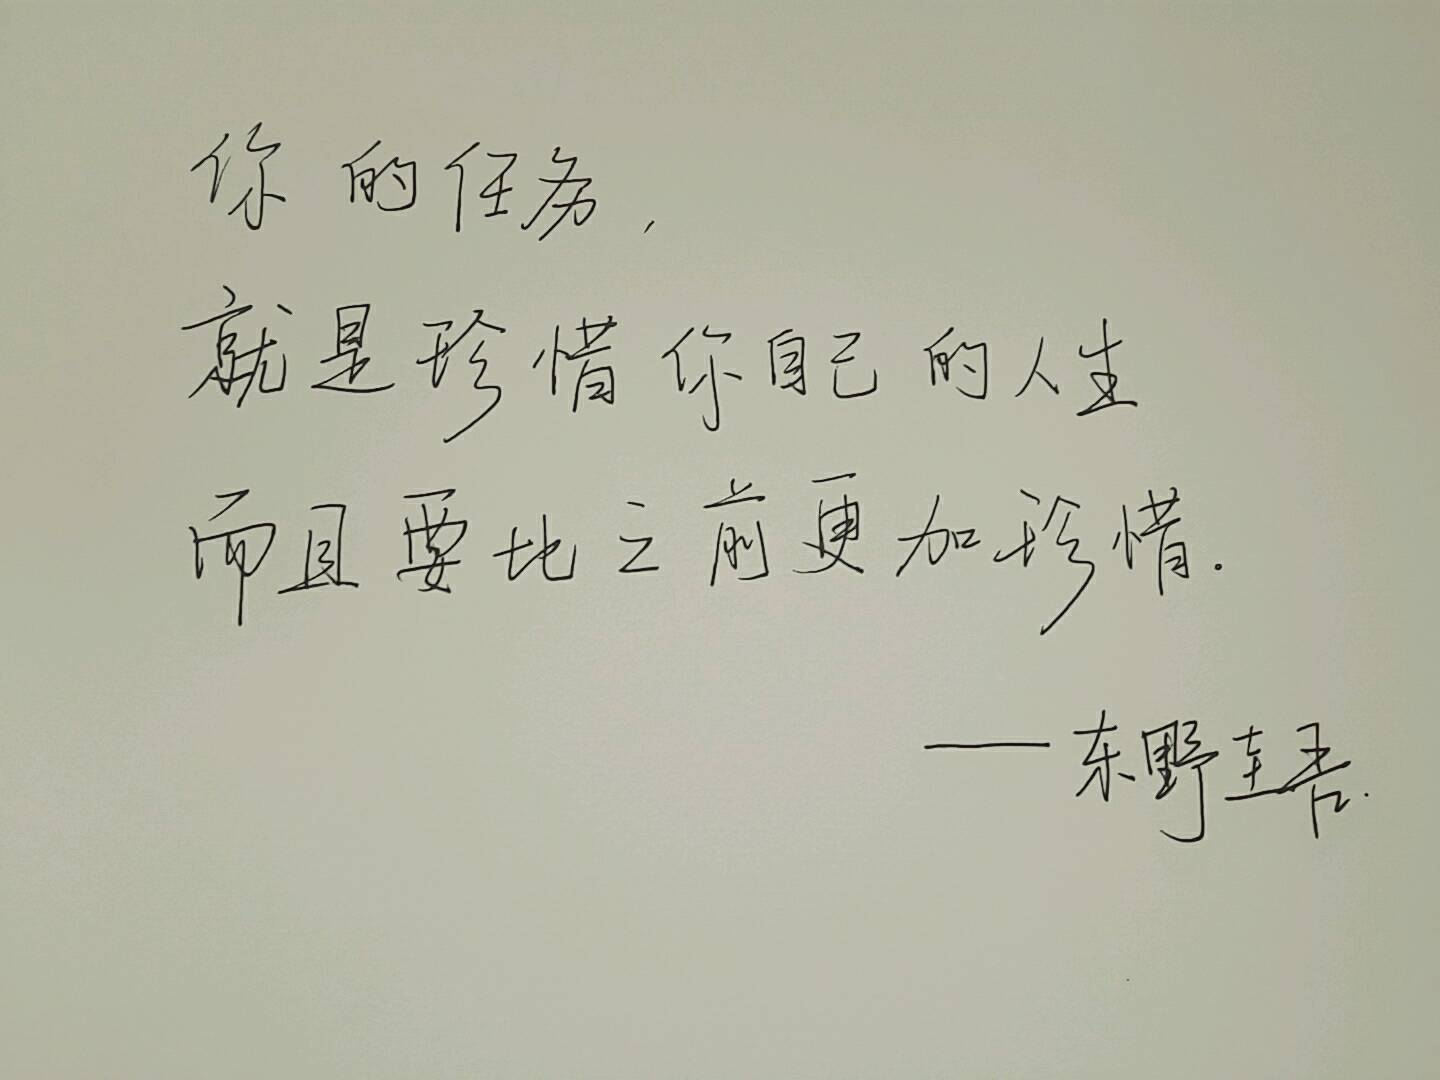 你的任务,
就是珍惜你自己的人生
而且要比之前更加珍惜.
——东野圭吾.